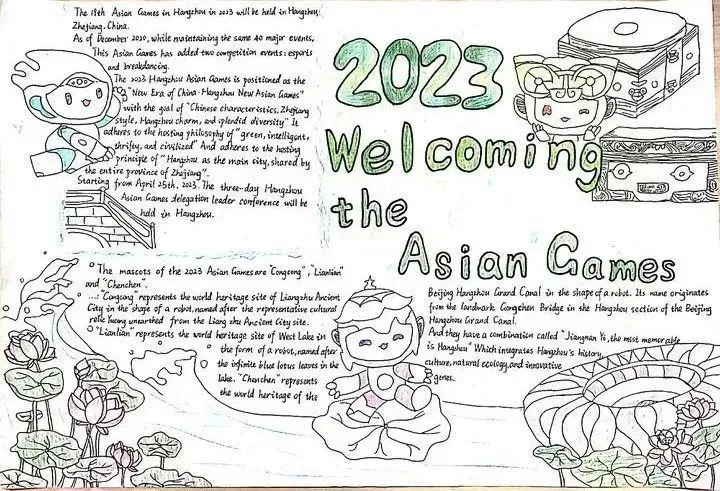 The 19th Asian Games in Hangzhou in 2023 will be held in Hangzhou,
Zhejiang, China.
As of December 2020, while maintaining the same 40 major events,
This Asian Games has added two competition events: esports
and breakdancing.
The 2023 Hangzhou Asian Games is positioned as the
"New Era of China·Hangzhou New Asian Games"
with the goal of "Chinese characteristics, Zhejiang
style, Hangzhou charm, and splendid diversity" It
adheres to the hosting philosophy of "green, intelligent,
thrifty, and civilized" And adheres to the hosting
principle of "Hangzhou as the main city, shared by
the entire province of Zhejiang".
Starting from April 25th, 2023. The three-day Hangzhou
Asian Games delegation leader conference will be
held in Hangzhou.
2023
Welcoming
the
Asian Games
The mascots of the 2023 Asian Games are "Congcong", "Lianlian"
and "Chenchen".
"Congcong" represents the world heritage site of Liangzhu Ancient
City in the shape of a robot, named after the representative cultural
relic Yucong unearthed from the Liang zhu Ancient City site.
"Lianlian" represents the world heritage site of West Lake in
the form of a robot, named after
the infinite blue lotus leaves in the
lake. "Chenchen" represents
the world heritage of the
Beijing Hangzhou Grand Canal in the shape of a robot. Its name originates
from the landmark Gongchen Bridge in the Hangzhou section of the Beijing
Hangzhou Grand Canal.
And they have a combination called "Jiangnan Yi, the most memorable
is Hangzhou" Which integrates Hangzhou's history
culture, natural ecology, and innovative
genes.